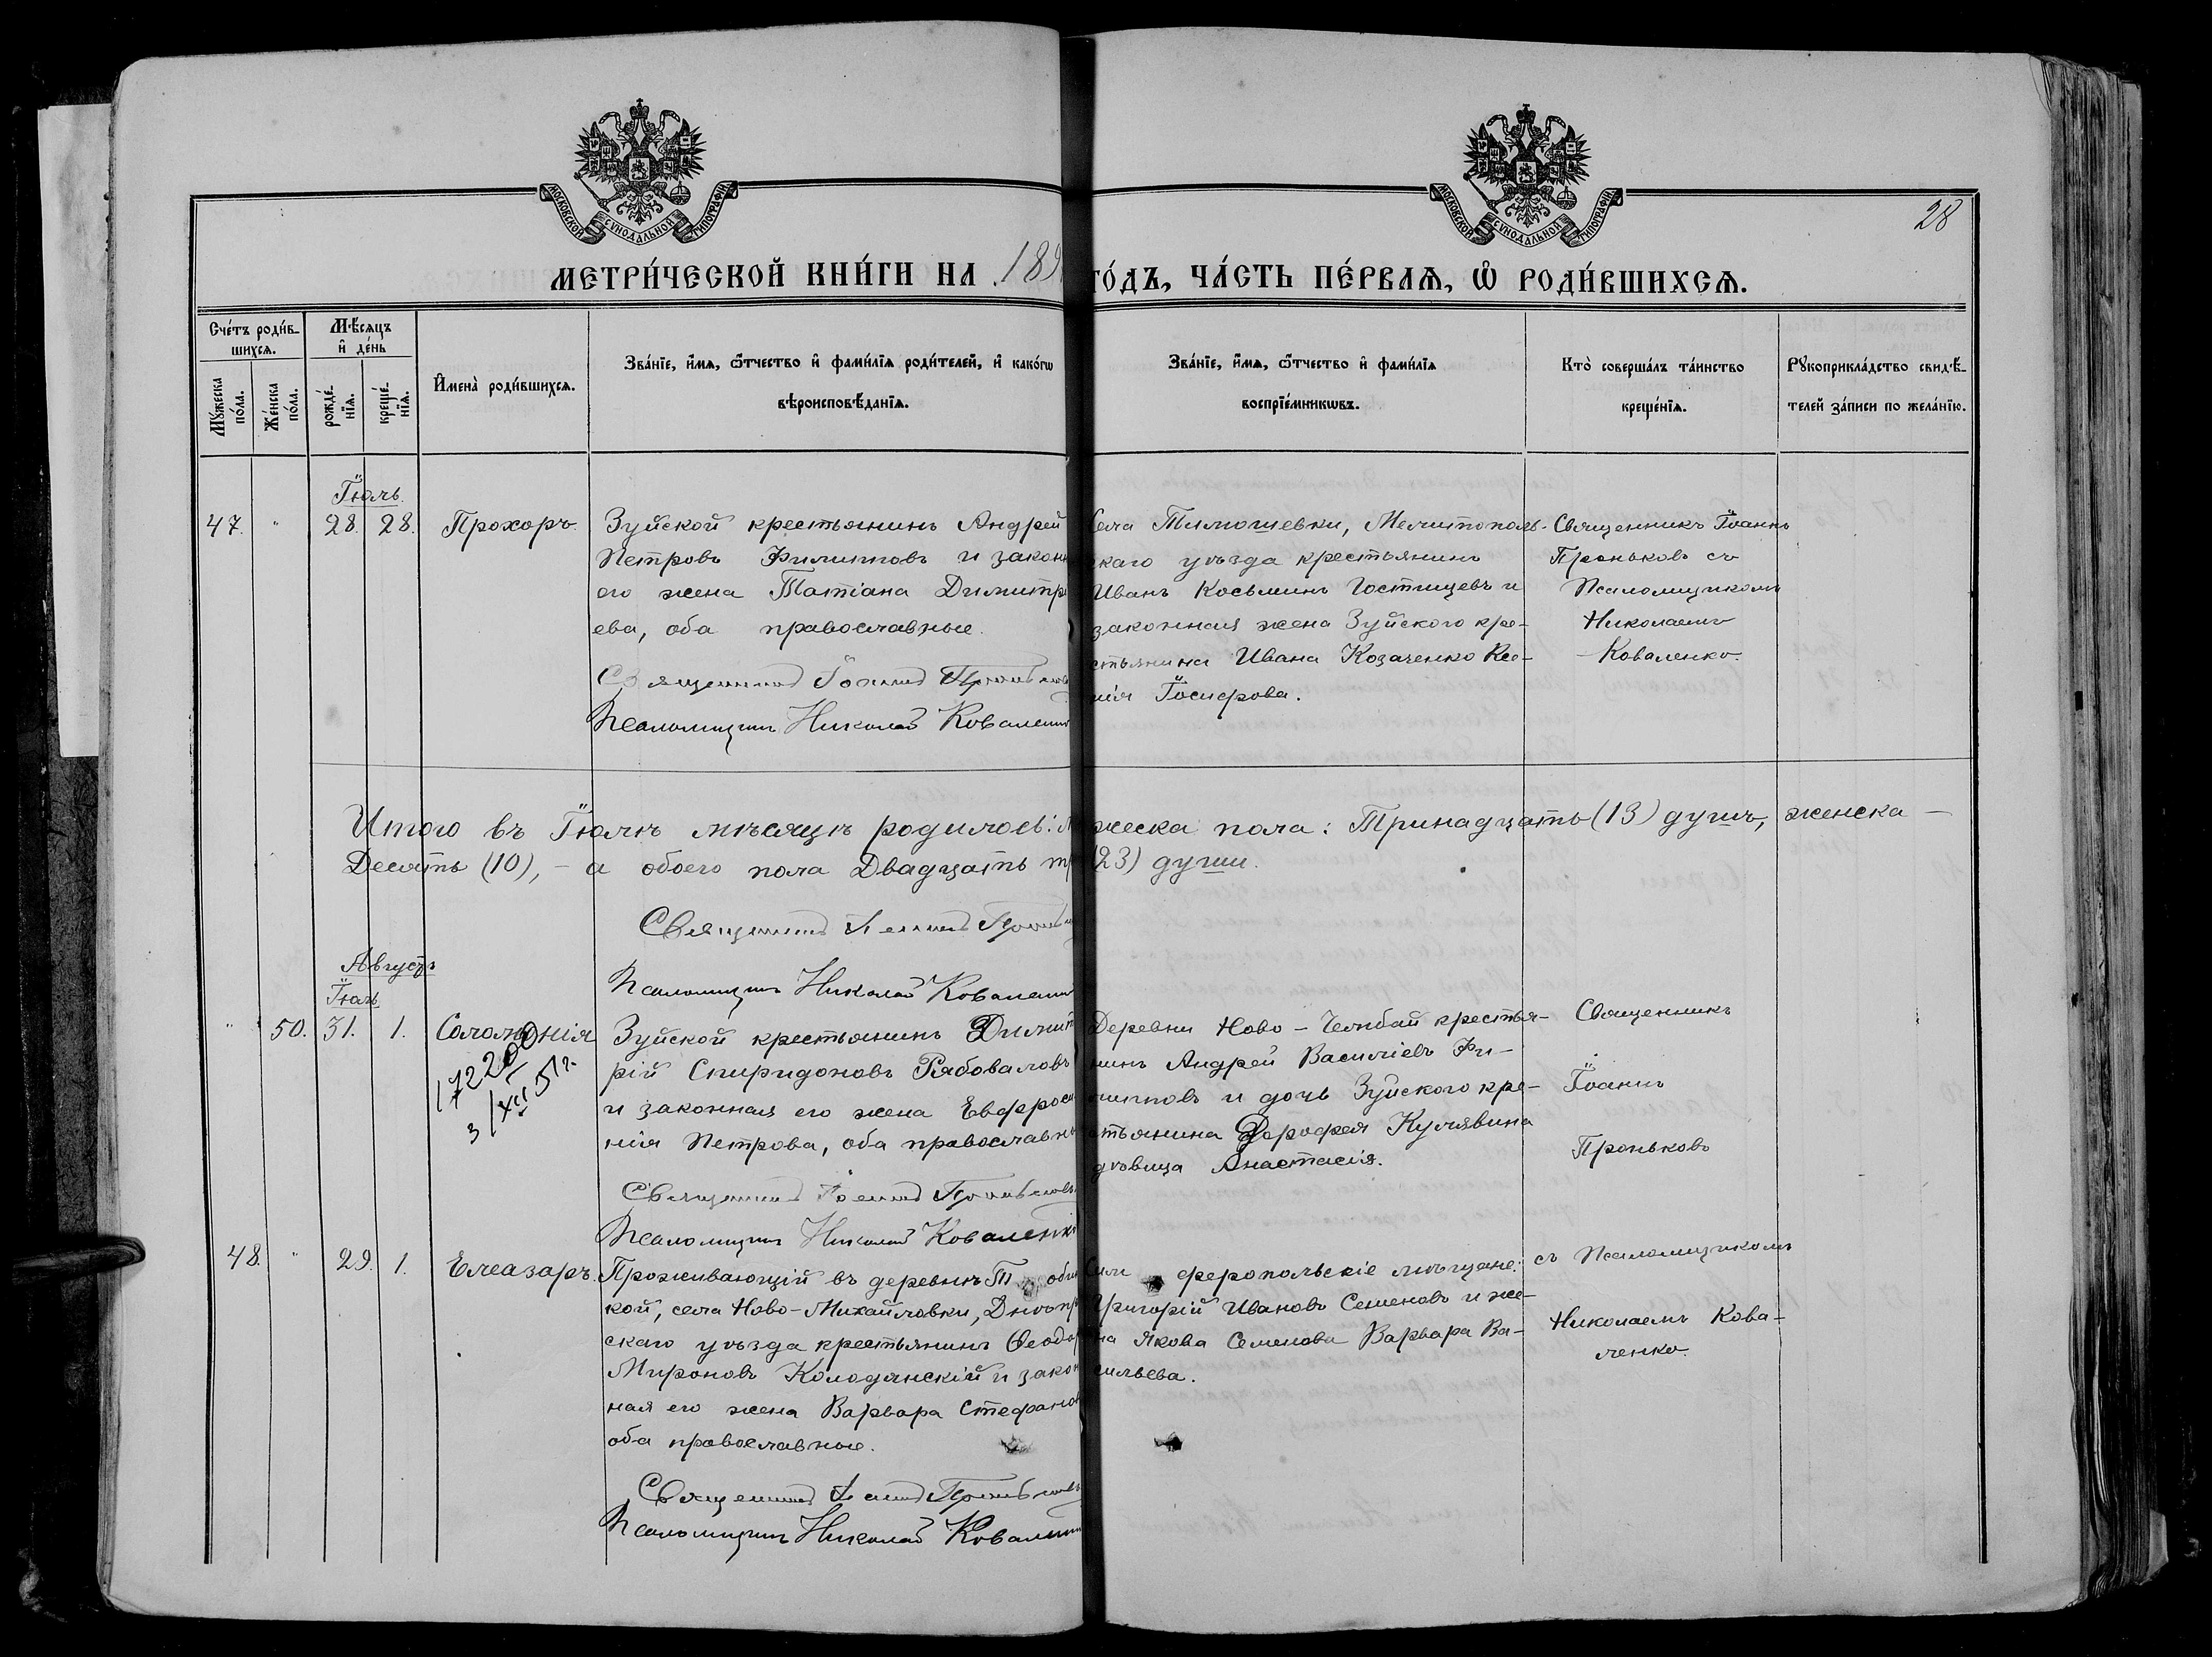 МОСКОВСКОЙ СѴНОДАЛЬНОЙ ТИПОГРАФІИ
МОСКОВСКОЙ СѴНОДАЛЬНОЙ ТИПОГРАФІИ
28
МЕТРИ́ЧЕСКОЙ КНИ́ГИ НА 189
ГО́ДЪ, ЧА́СТЬ ПЕ́РВАѦ, Ѽ РОДИ́ВШИХСѦ.
Сче́тъ роди́в-
шихсѧ.
Мꙋ́жеска
по́ла.
Же́нска
по́ла.
Мѣ́сѧцъ
и҆ де́нь
рожде́-
нїѧ.
креще́-
нїѧ.
И҆мена̀ роди́вшихсѧ.
Зва́нїе, и҆́мѧ, ѻ҆́тчество и҆ фами́лїѧ роди́телей, и҆ како́гѡ
вѣроисповѣ́данїѧ.
Зва́нїе, и҆́мѧ, ѻ҆́тчество и҆ фами́лїѧ
воспрїе́мникѡвъ.
Кто̀ соверша́лъ та́инство
креще́нїѧ.
Рꙋкоприкла́дство свидѣ́-
телей за́писи по жела́нїю.
Іюль
47. " 28. 28. Прохоръ.
Зуйской крестьянинъ Андрей
Петровъ Филиповъ и закон
его жена Татіана Димитрі
ева, оба православные.
Священникъ Іоаннъ Проньков
Псаломщикъ Николай Коваленко
Села Тимошевки, Мелитополь-
скаго уѣзда крестьянинъ
Иванъ Косьминъ Гостищевъ и
законная жена Зуйского кре-
стьянина Ивана Козаченко Ксе-
нія Іосифова.
Священникъ Іоаннъ
Проньковъ съ
Псаломщикомъ
Николаемъ
Коваленко.
Итого въ Іюлѣ мѣсяцѣ родилось: м
жеска пола: Тринадцать (13) душъ, женска –
Десять (10), – а обоего пола Двадцать тр
(23) души.
Священникъ Іоаннъ Проньков
Псаломщикъ Николай Коваленко
Августъ
Іюль
" 50. 31. 1. Соломонія
172200
3/XII 51 г.
Зуйской крестьянинъ Димит
рій Спиридоновъ Рябоваловъ
и законная его жена Евфроси
нія Петрова, оба православны
Священникъ Іоаннъ Проньковъ
Псаломщикъ Николай Коваленко
Деревни Ново-Челибай крестья-
нинъ Андрей Василіевъ Фи-
липповъ и дочь Зуйского кре-
стьянина Дорофея Кулявина
дѣвица Анастасія.
Священникъ
Іоаннъ
Проньковъ
48. " 29. 1. Елеазаръ.
Проживающій въ деревнѣ
кой, села Ново-Михайловки, Днѣпр
скаго уѣзда крестьянинъ Ѳеодор
Мироновъ Колодянскій и закон
ная его жена Варвара Стефанов
оба православные.
Священникъ Іоаннъ Проньковъ
Псаломщикъ Николай Коваленко
Сим феропольскіе мѣщане:
Григорій Ивановъ Семеновъ и же-
на Якова Семенова Варвара Ва-
сильева.
съ Псаломщикомъ
Николаемъ Кова-
ленко.